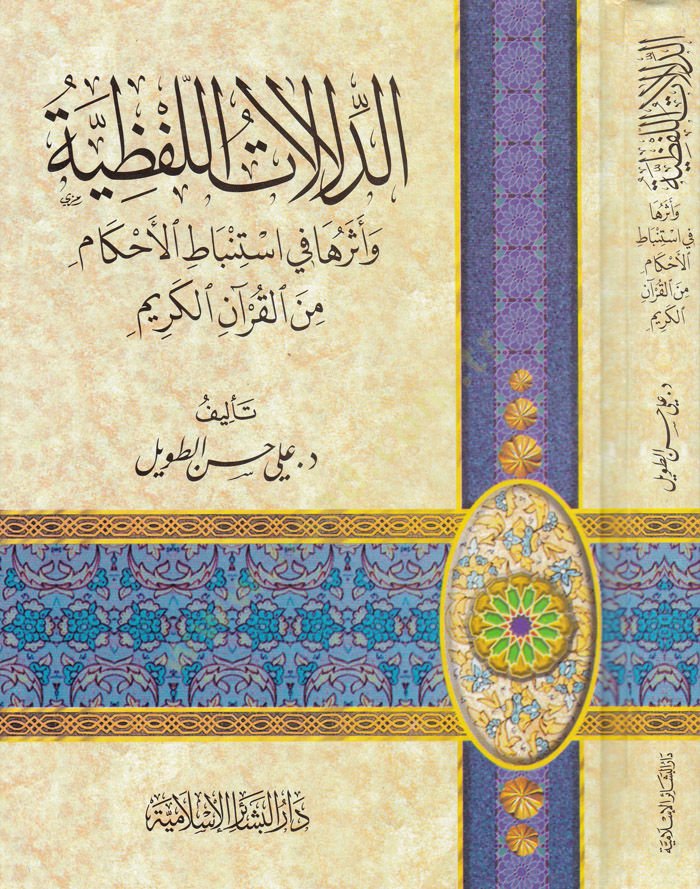 الدِّلَالَاتُ اللَّفْظِيَّةُ
وَأَثَرُهَا فِي اسْتِنْبَاطِ الْأَحْكَامِ
مِنَ الْقُرْآنِ الْكَرِيمِ
تَأْلِيفُ
د. علي حسن الطويل
دَارُ البَشَائِرِ الإِسْلَامِيَّة
الدِّلَالَاتُ اللَّفْظِيَّةُ
وَأَثَرُهَا
فِي اسْتِنْبَاطِ
الْأَحْكَامِ
مِنَ الْقُرْآنِ
الْكَرِيمِ
د. علي حسن الطويل
دَارُ البَشَائِرِ الإِسْلَامِيَّة